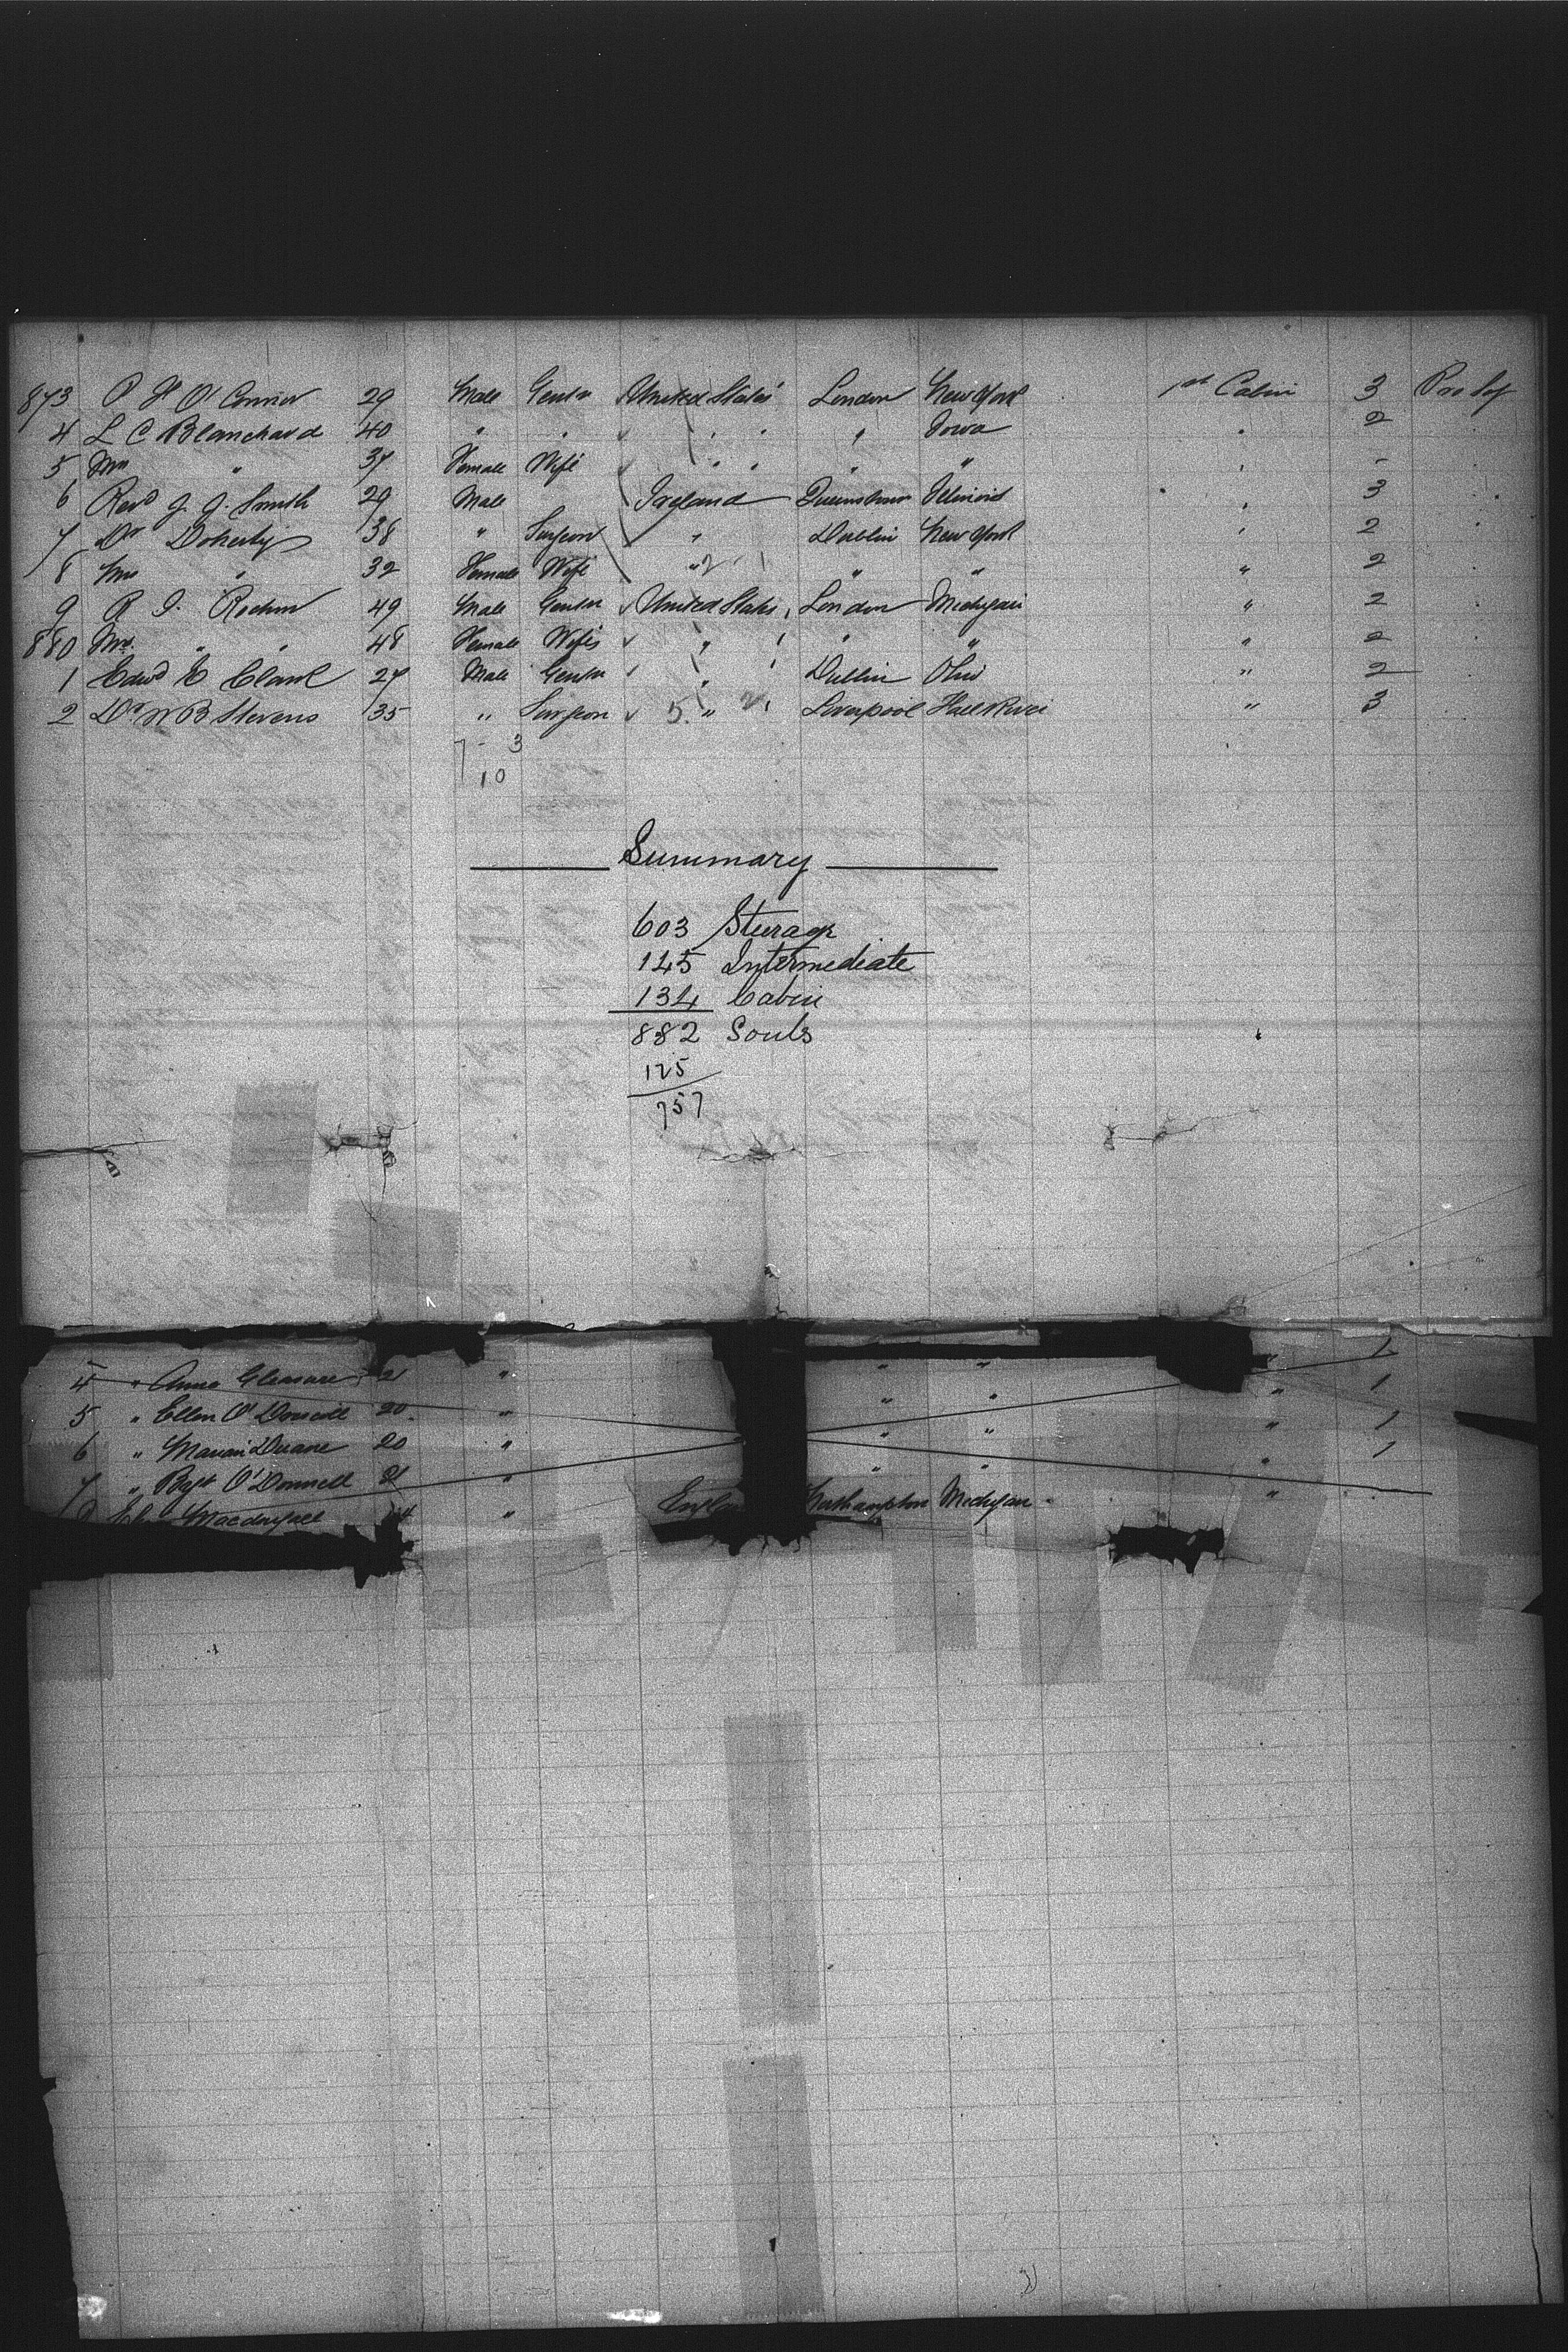 873 P H O'Connor 29 Male Gentn United States London New York 1st Cabin 3
4 L C Blanchard 40 " " " " " Iowa " 2
5 Mrs " 37 Female Wife " " " " " -
6 Revd J. J. Smith 29 Male Ireland Queenstown Illinois " 3
7 Dr Doherty 38 " Surgeon " Dublin New York " 2
8 Mrs " 32 Female Wife " 2 " " " 2
9 R J. 49 Male Gentn United States London Michigan " 2
880 Mrs. " " 48 Female Wife " " " " 2
1 Edwd E Clark 27 Male Gentn " Dublin Ohio " 2
2 Dr W B Stevens 35 " Surgeon 5 " 2 Liverpool " 3
7 - 3
10
Summary
603 Steerage
145 Intermediate
134 Cabin
882 Souls
125
757
" " " 1
4 " Anne 21 " " " " 1
5 " Ellen O'Donnell 20 " " " " 1
6 " Duane 20 " " " " 1
7 " Bgt O'Donnell 21 " " " "
Macdougall 24 " Northampton Michigan